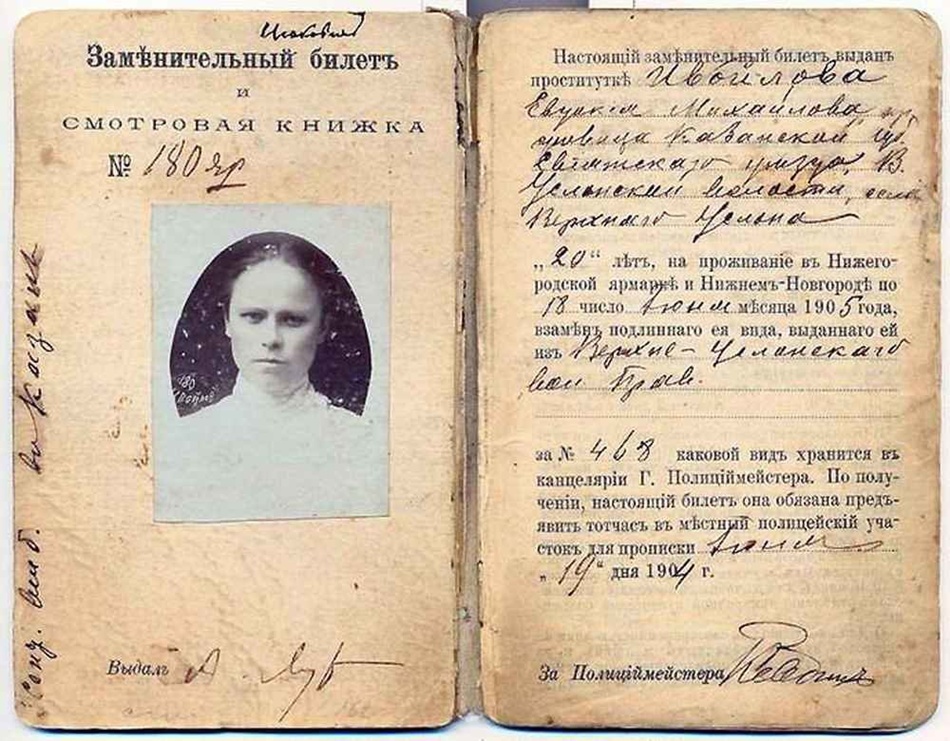 Замѣнительный билетъ
и
СМОТРОВАЯ КНИЖКА
№ 180 яр
180
Выдалъ А.
въ Казани
Настоящій замѣнительный билетъ выданъ
проституткѣ Ивойлова
Евдокія Михайлова
Казанской губ
уѣзда, В.
Услонской волости, села
Верхняго Услона
„20“ лѣтъ, на проживаніе въ Нижего-
родской ярмаркѣ и Нижнемъ-Новгородѣ по
18 число Іюня мѣсяца 1905 года,
взамѣнъ подлиннаго ея вида, выданнаго ей
изъ Верхне-Услонскаго
вол Прав.
за № 468 каковой видъ хранится въ
канцеляріи Г. Полиціймейстера. По полу-
ченіи, настоящій билетъ она обязана предъ-
явить тотчасъ въ мѣстный полицейскій уча-
стокъ для прописки Іюня
„19“ дня 1904 г.
За Полиціймейстера